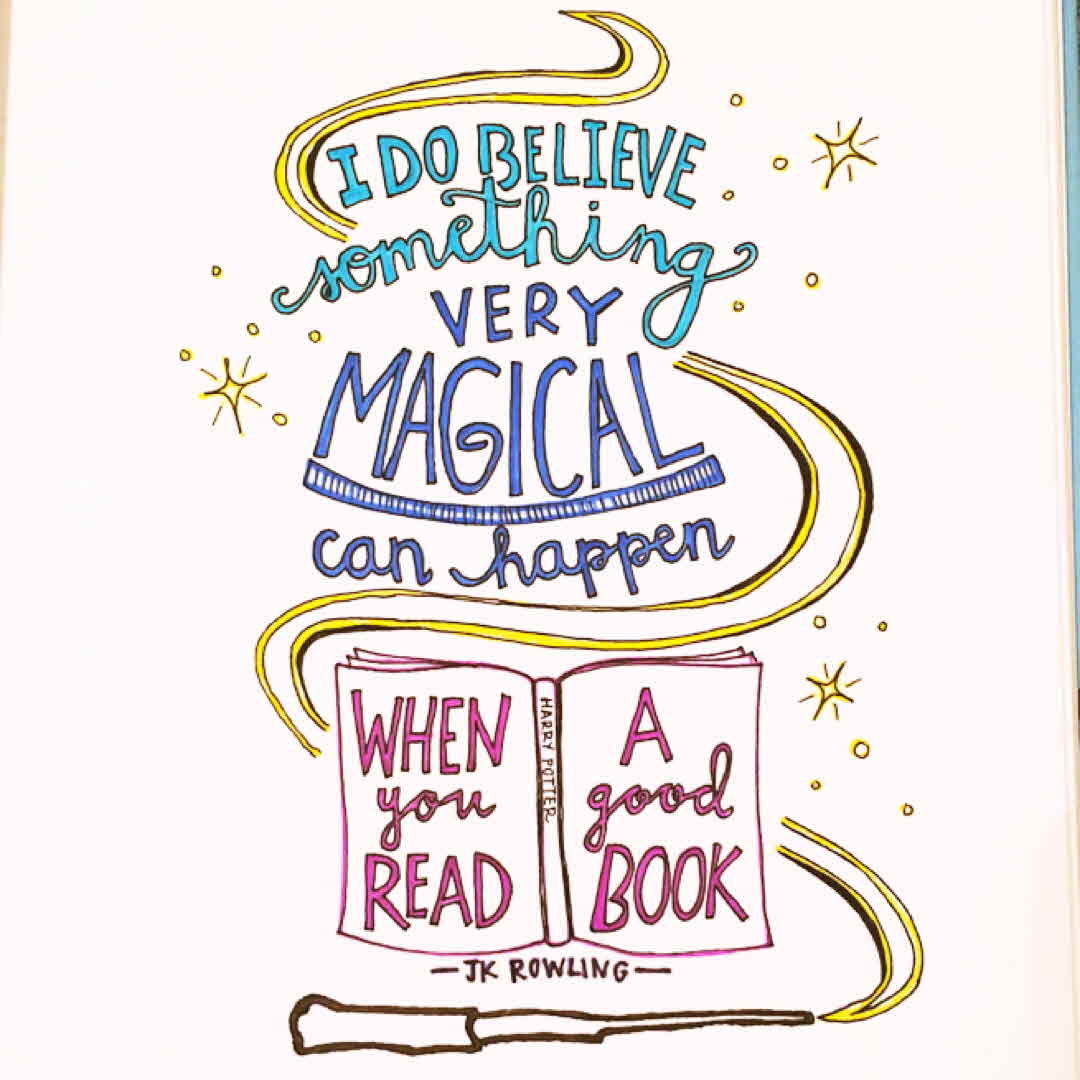 I DO BELIEVE
something
VERY
MAGICAL
can happen
WHEN
you
READ
HARRY POTTER
A
good
BOOK
—JK ROWLING—